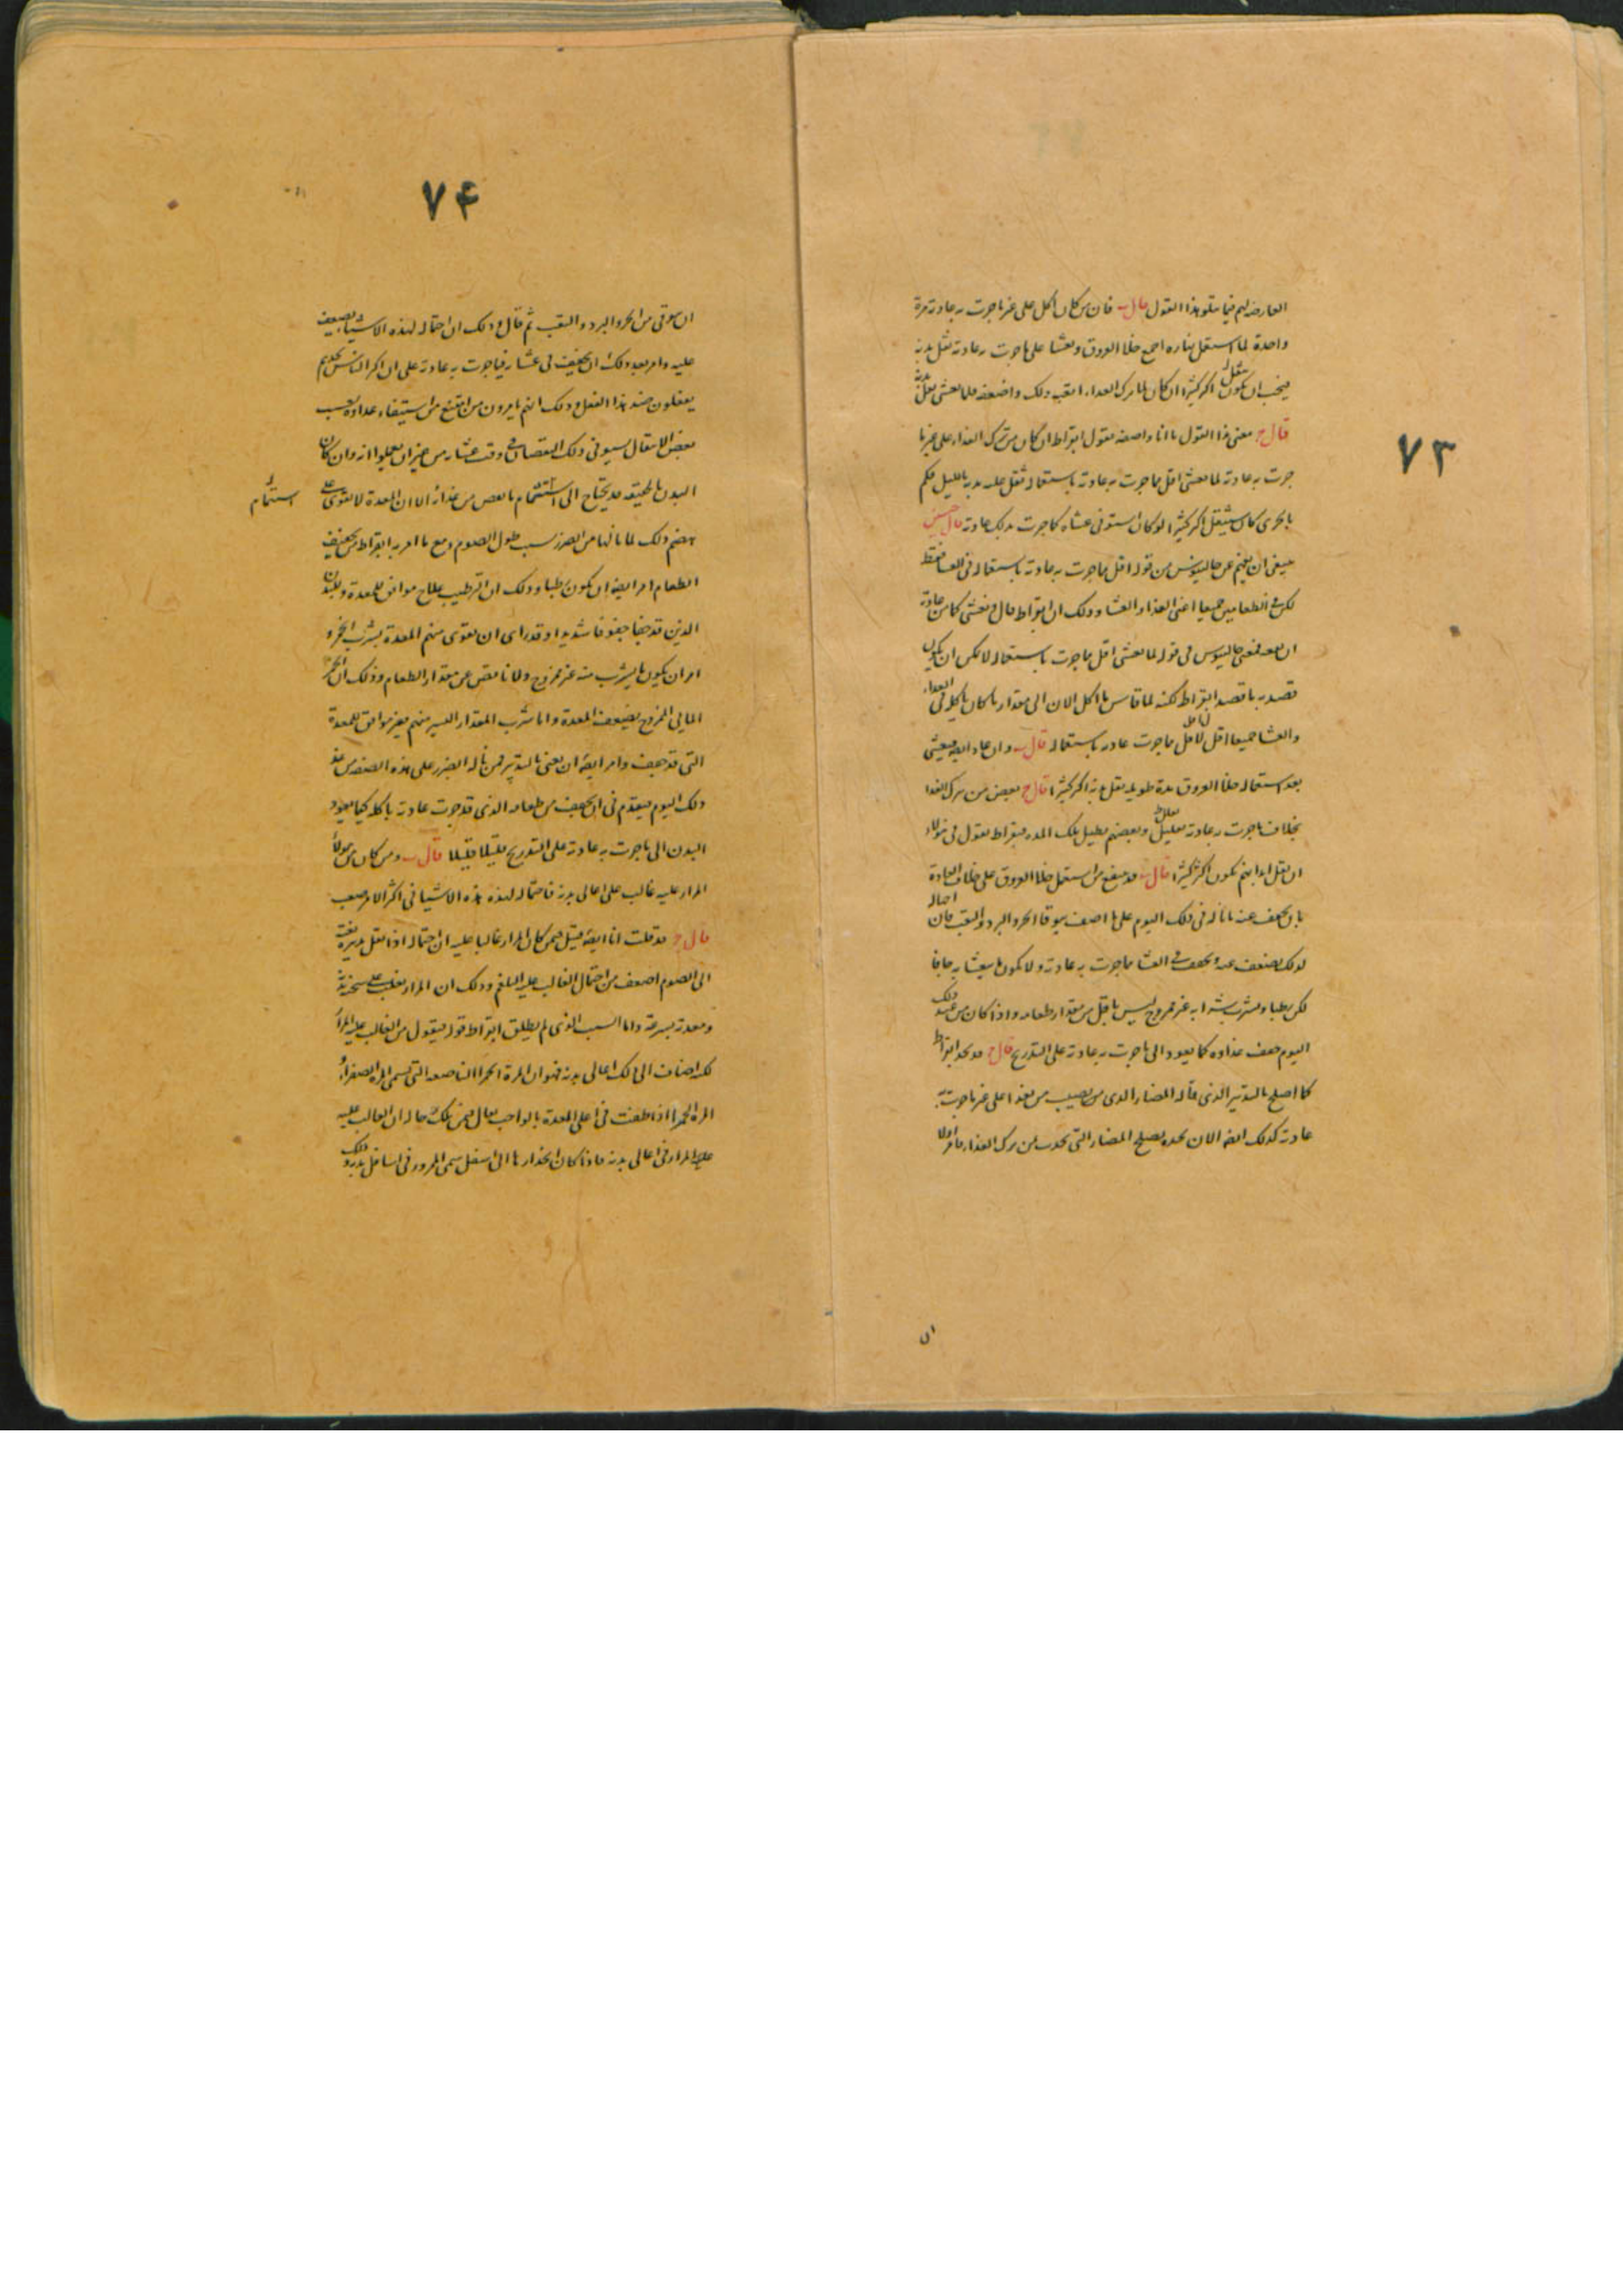 ٧٣
العارضة لهم فيما يتلو هذا القول قال ب فان من كان اكل على غير ما جرت به عادته مرة
واحدة لما استعمل نهاره اجمع خلا العروق وتعشا على ما جرت به عادته ثقل بدنه
فيجب ان يكون ثقل اكثر كثيرا ان كان لما ترك الغداء اتعبه ذلك واضعفه فلما تعشى ثقل بدنه
قال ج معنى هذا القول ما انا واصفه يقول ابقراط ان كان من ترك الغداء على غير ما
جرت به عادته لما تعشى اقل مما جرت به عادته باستعماله ثقل عليه بدنه بالليل فكم
بالحرى كان سيثقل اكثر كثيرا لو كان استوفى عشاه كما جرت بذلك عادته قال حنين
ينبغى ان يفهم عن جالينوس من قوله اقل مما جرت به عادته باستعماله فى العشا فقط
لكن فى الطعامين جميعا اعنى الغذاء والعشا وذلك ان ابقراط قال وتعشى كما من عادته
ان بعد فمعنى جالينوس فى قوله لما تعشى اقل مما جرت باستعماله لا يمكن ان يكون
قصد به ما قصد ابقراط لكنه لما قاس ما اكل الان الى مقدار ما كان ياكله فى الغداء
والعشا جميعا اقل مما جرت عادته باستعماله قال ب وان عاد ايضا فتعشى
بعد استعماله خلا العروق مدة طويلة ثقل بدنه اكثر كثيرا قال ج بعض من ترك الغدا
بخلاف ما جرت به عادته بقليل وبعضهم يطيل تلك المدة فبقراط يقول فى هولاء
ان ثقل ابدانهم يكون اكثر كثيرا قال ب قد ينتفع من استعمل خلا العروق على خلاف العادة
بان يخفف عنه ما ناله فى ذلك اليوم على ما اصف يتوقا الحر والبرد والتعب فان احتماله
لذلك يضعف عنه ويخفف فى العشا مما جرت به عادته ولا يكون ما يتعشا به جافا
لكن رطبا ويشرب شرابه غير ممزوج ليس باقل من مقدار طعامه واذا كان من غد ذلك
اليوم خفف غذاوه كما يعود الى ما جرت به عادته على التدريج قال ج قد نجد ابقراط
كما اصلح بالتدبير الذى قاله المضار الذى من يصيب من تغذا على غير ما جرت به
عادته كذلك ايضا الان نجده يصلح المضار التى تحدث من ترك الغذاء فامر اولا
ان
٧۴
ان يتوقى من الحر والبرد والتعب ثم قال وذلك ان احتماله لهذه الاشيا يضعف
عليه وامر بعد ذلك ان يخفف فى عشاه فيما جرت به عادته على ان اكثر الناس نجدهم
يفعلون ضد هذا الفعل وذلك انهم يرون من امتنع من استيفاء غداوه بسبب
بعض الاشغال سيوفى ذلك النقصان فى وقت عشاه من غير ان يعلموا انه وان كان
البدن بالحقيقة قد يحتاج الى استتمام ما نقص من غذائه الا ان المعدة لا تقوى على
استتمام
هضم ذلك لما نالها من الضرر بسبب طول الصوم ومع ما امر به ابقراط من تخفيف
الطعام امر ايضا ان يكون رطبا وذلك ان الترطيب علاج موافق للمعدة وللبدن
الذين قد جفا جفوفا شديدا وقد راى ان تقوى منهم المعدة بشرب الخمر و
امر ان يكون ما يشرب منه غير ممزوج ولا ناقص عن مقدار الطعام وذلك ان الخمر
المائى الممزوج يضعف المعدة واما شرب المقدار اليسير منهم فغير موافق للمعدة
التى قد جفت وامر ايضا ان يعنى بالتدبير فمن ناله الضرر على هذه الصفة من غد
ذلك اليوم فيقدم فى ان يخفف من طعامه الذى قد جرت عادته باكله كيما يعود
البدن الى ما جرت به عادته على التدريج قليلا قليلا قال ب ومن كان من هولاء
المرار عليه غالب على اعالى بدنه فاحتماله لهذه هذه الاشيا فى اكثر الامر صعب
قال ج قد قلت انا ايضا قبيل فيمن كان المرار غالبا عليه ان احتماله اذا نقل تدبيره بغتة
الى الصوم اضعف من احتمال الغالب عليه البلغم وذلك ان المرار يغلب على سخنة بدنه
ومعدته بسرعة واما السبب الذى لم يطلق ابقراط قوله فيقول من الغالب عليه المرار
لكنه اضاف الى ذلك اعالى بدنه فهو ان المرة الحمرا الناصعة التى تسمى المرة الصفراء
المرة الحمرا اذا طفت فى اعلى المعدة بالواجب يقال فيمن تلك حاله ان الغالب عليه
عليه المرار فى اعالى بدنه فاذا كان انحدارها الى اسفل سمى المرور فى اسافل بدنه وذلك